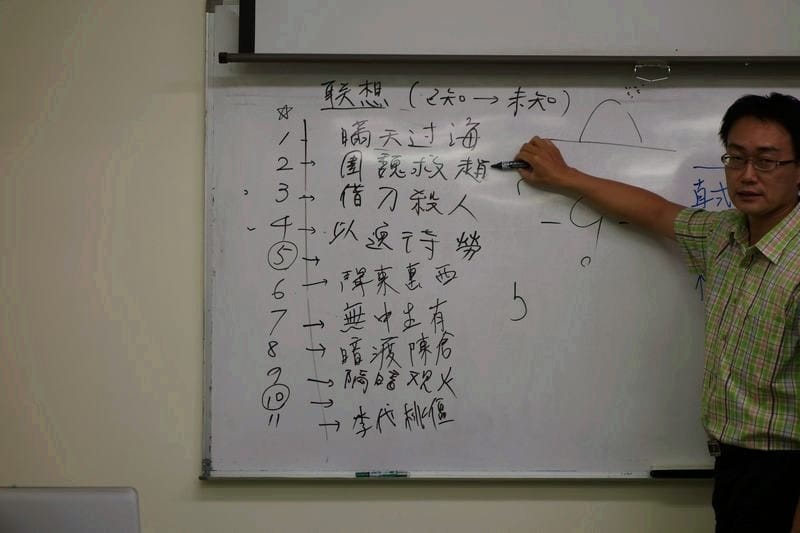 联想 (已知→未知)
☆
1 瞞天过海
2 → 围魏救趙
3 → 借刀殺人
4 → 以逸待勞
5 →
6 → 聲東擊西
7 → 無中生有
8 → 暗渡陳倉
9 → 隔岸观火
10 →
11 → 李代桃僵
- 9 -
5
直式